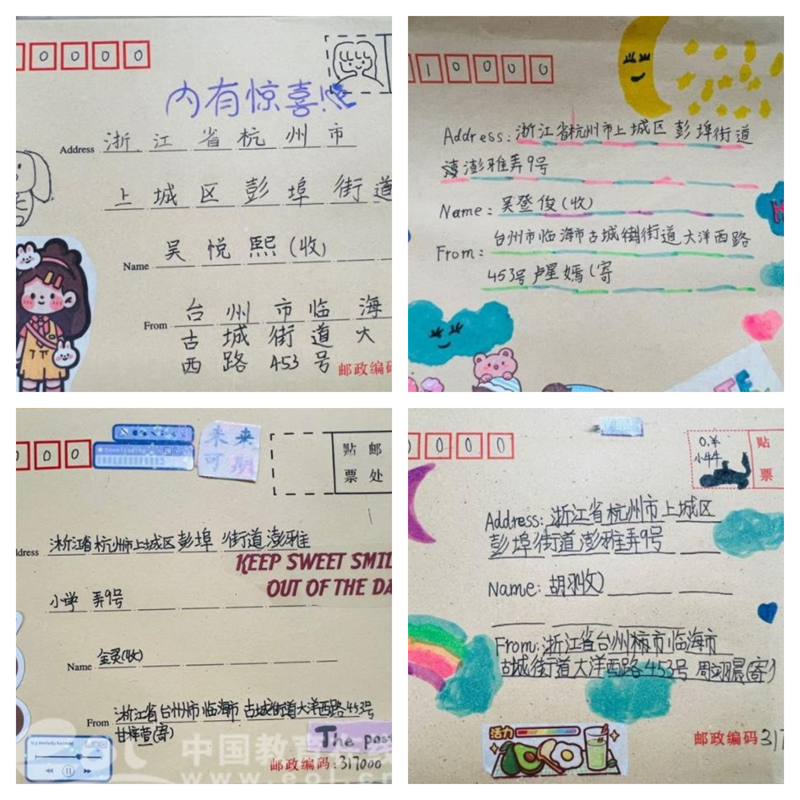 0000
内有惊喜!
Address 浙江省杭州市
上城区彭埠街道
Name 吴悦熙(收)
From 台州市临海
古城街道大
西路453号
邮政编码
10000
Address: 浙江省杭州市上城区彭埠街道
澎雅弄9号
Name: 吴登俊(收)
From: 台州市临海市古城街道大洋西路
453号卢星嫣(寄
000
未来
可期
贴邮
票处
Address 浙江省杭州市上城区彭埠街道澎雅
KEEP SWEET SMIL
OUT OF THE DA
小学 弄9号
Name 金灵(收)
From 浙江省台州市临海市古城街道大洋西路453号
甘梓萱(寄)
The pos
中国教育在线
www.eol.cn
邮政编码:317000
0000
贴
票
Address: 浙江省杭州市上城区
彭埠街道澎雅弄9号
Name: 胡(收)
From: 浙江省台州市临海市
古城街道大洋西路453号 周翊晨(寄)
活力
邮政编码 317